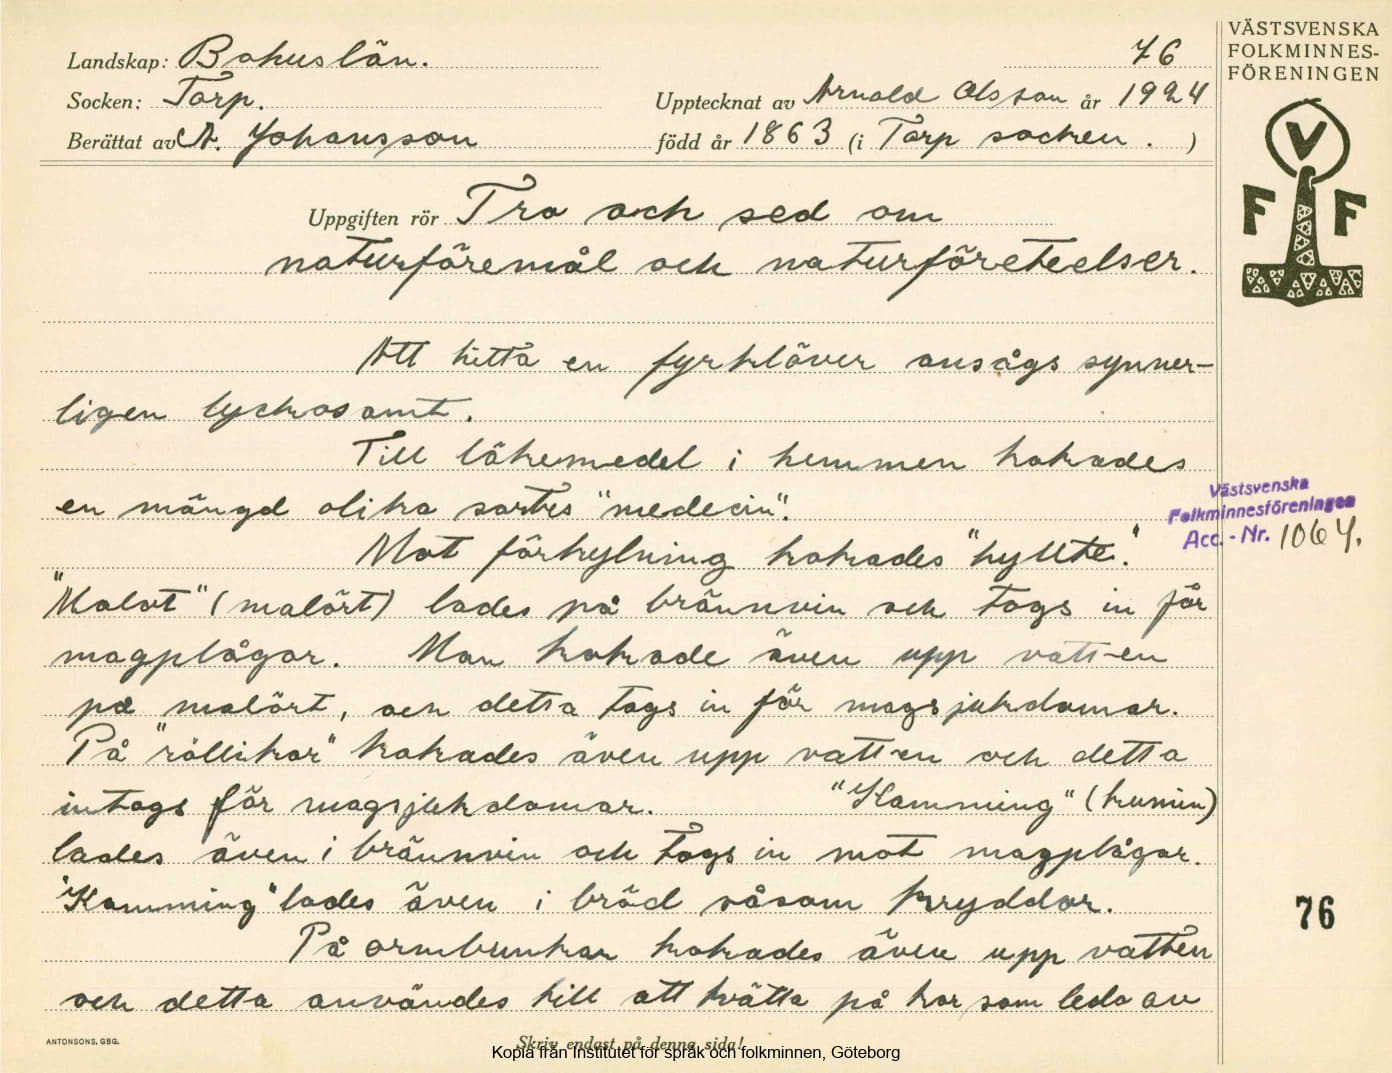 VÄSTSVENSKA
FOLKMINNES-
FÖRENINGEN
V
F F
Landskap: Bohuslän. 76
Socken: Torp. Upptecknat av Arnold Olsson år 1924
Berättat av A. Johansson född år 1863 (i Torp socken. )
Uppgiften rör Tro och sed om
naturföremål och naturföreteelser.
Att hitta en fyrklöver ansågs synner-
ligen lyckosamt.
Till läkemedel i hemmen kokades
en mängd olika sorters "medecin".
Mot förkylning kokades "hyllte".
"Malot" (malört) lades på brännvin och togs in för
magplågor. Man kokade även upp vatten
på malört, och detta togs in för magsjukdomar.
På "röllikor" kokades även upp vatten och detta
intogs för magsjukdomar. "Kamming" (kumin)
lades även i brännvin och togs in mot magplågor.
"Kamming" lades även i bröd såsom kryddor.
På ormbunkar kokades även upp vatten
och detta användes till att tvätta på kor som leda av
Västsvenska
Folkminnesföreningen
Acc. - Nr. 1064.
76
ANTONSONS, GBG.
Skriv endast på denna sida!
Kopia från Institutet för språk och folkminnen, Göteborg